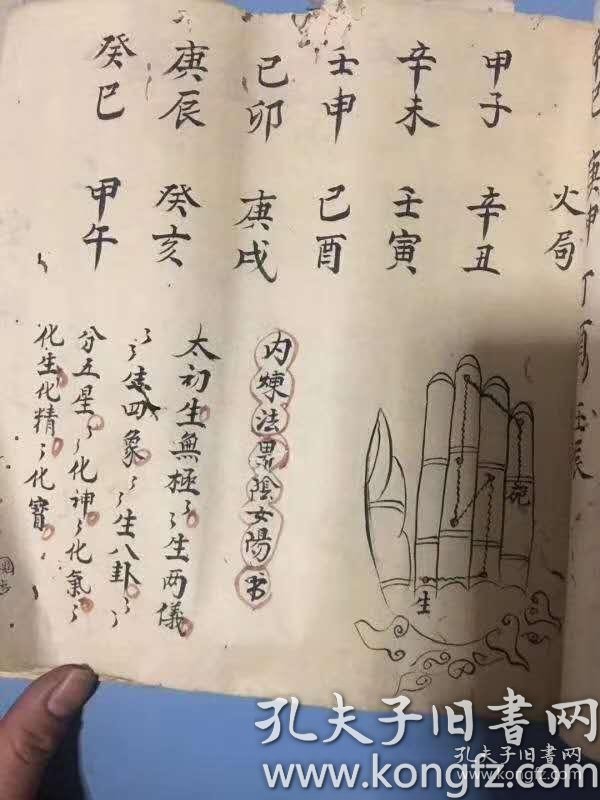 火局
甲子 辛丑
辛未 壬寅
壬申 己酉
己卯 庚戌
庚辰 癸亥
癸巳 甲午
生
内煉法陰女陽书
太初生無極〻生兩儀
〻生四象〻生八卦〻
分五星〻化神〻化氣〻
化生化精〻化寶
孔夫子旧書网
www.kongfz.com
孔夫子旧書网
www.kongfz.com